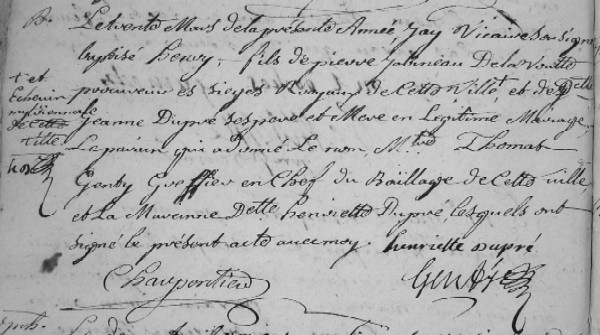 B. Le trente Mars de la présente Année J'ay Vicaire soussigné
baptisé henry, fils de pierre De la
procureur es sieges Royaux de Cette Ville et de Delle
Jeanne Dupré ses pere et Mere en Légitime Mariage,
Le parain qui a donné Le nom, Mtre Thomas
Genty Greffier en Chef du Baillage de Cette ville,
et La Maraine Delle henriette Dupré, Lesquels ont
signé le présent acte avec moy. henriette dupré
Charpentier Genty
+ et
Echevin
de Cette
Ville